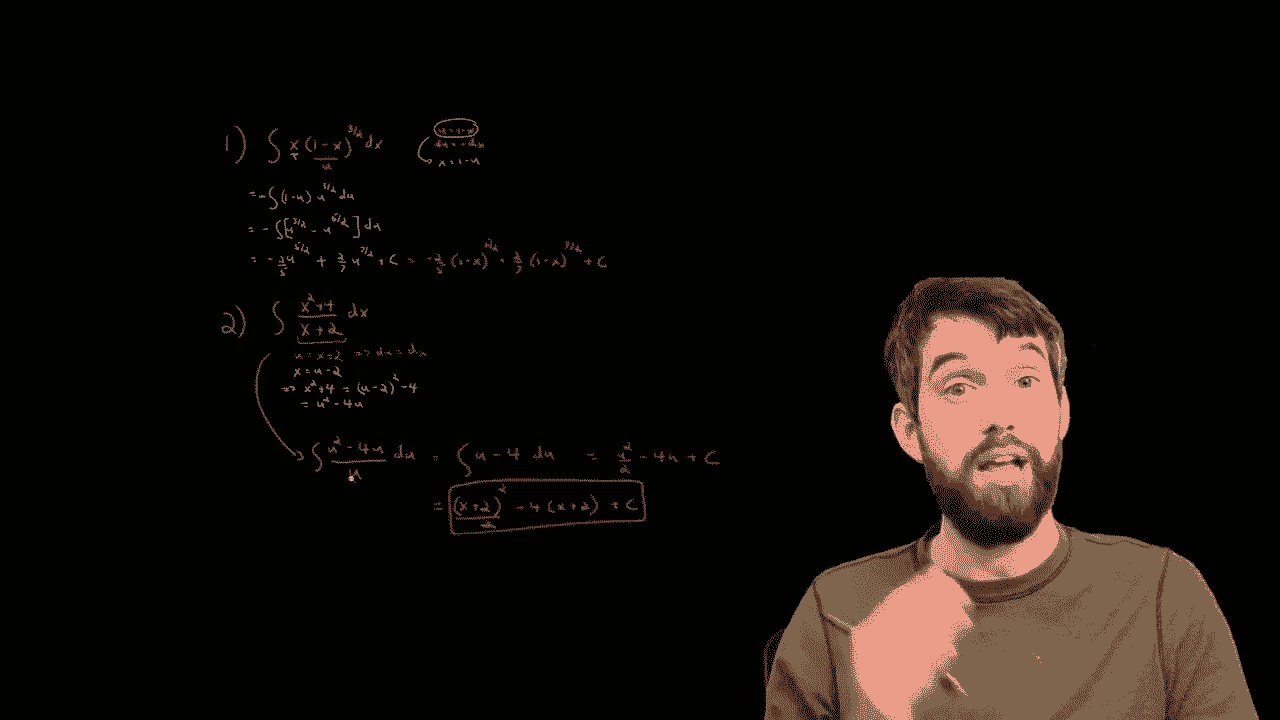 1) ∫ x (1-x)^{3/2} dx
u
u = 1-x
du = -dx
x = 1-u
= -∫ (1-u) u^{3/2} du
= -∫ [u^{3/2} - u^{5/2}] du
= -2/5 u^{5/2} + 2/7 u^{7/2} + C = -2/5 (1-x)^{5/2} + 2/7 (1-x)^{7/2} + C
2) ∫ (x²+4)/(x+2) dx
u = x+2 => du = dx
x = u-2
=> x²+4 = (u-2)²-4
= u²-4u
∫ (u²-4u)/u du = ∫ u-4 du = u²/2 - 4u + C
= (x+2)²/2 - 4(x+2) + C